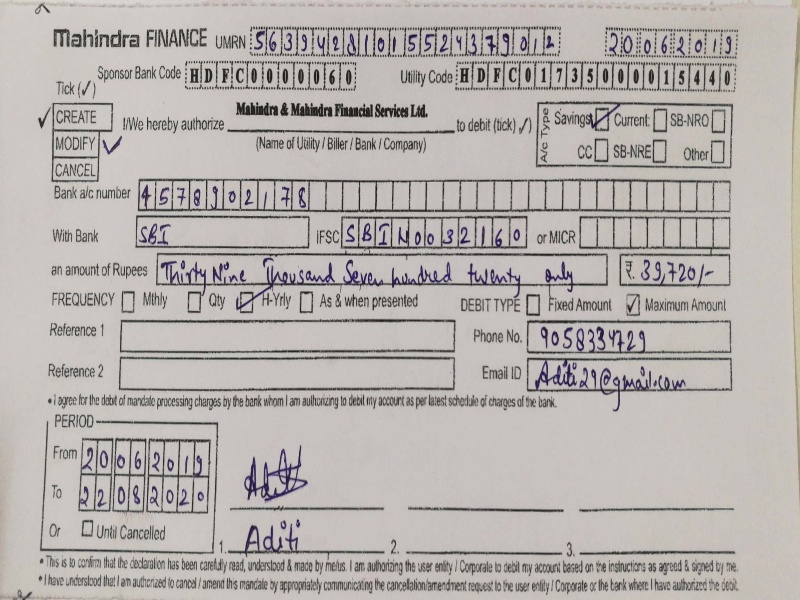 Mahindra FINANCE UMRN 56394281015524379012 20062019
Tick (✓) Sponsor Bank Code HDFC0000060 Utility Code HDFC01735000015440
CREATE
MODIFY
CANCEL
I/We hereby authorize Mahindra & Mahindra Financial Services Ltd. to debit (tick) ✓)
(Name of Utility / Biller / Bank / Company)
A/c Type Savings Current: SB-NRO
CC SB-NRE Other
Bank a/c number 4578902178
With Bank SBI IFSC SBIN0032160 or MICR
an amount of Rupees Thirty Nine Thousand Seven hundred twenty only ₹. 39,720/-
FREQUENCY Mthly Qty H-Yrly As & when presented DEBIT TYPE Fixed Amount Maximum Amount
Reference 1 Phone No. 9058334729
Reference 2 Email ID Aditi29@gmail.com
• I agree for the debit of mandate processing charges by the bank whom I am authorizing to debit my account as per latest schedule of charges of the bank.
PERIOD
From 20062019
To 22082020
Or Until Cancelled
Aditi
1. Aditi 2. 3.
• This is to confirm that the declaration has been carefully read, understood & made by me/us. I am authorizing the user entity / Corporate to debit my account based on the instructions as agreed & signed by me.
• I have understood that I am authorized to cancel / amend this mandate by appropriately communicating the cancellation/amendment request to the user entity / Corporate or the bank where I have authorized the debit.